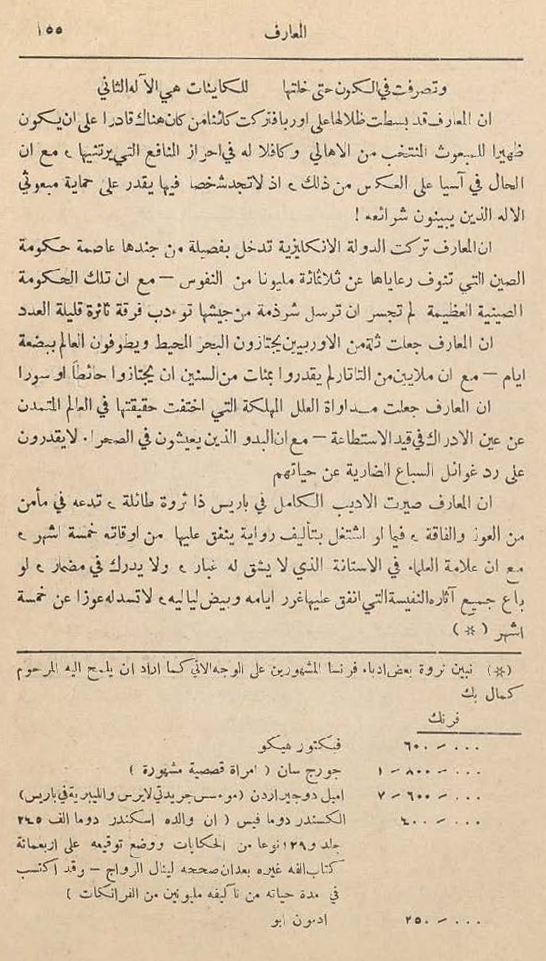 المعارف ١٥٥
وتصرفت في الكون حتى خلتها للكاينات هي الآله الثاني
ان المعارف قد بسطت ظلالها على اوربا فتركت كائنا من كان هناك قادرا على ان يكون
ظهيرا للمبعوث المنتخب من الاهالي وكافلا له في احراز المنافع التي يرتئيها ، مع ان
الحال في آسيا على العكس من ذلك ، اذ لا تجد شخصا فيها يقدر على حماية مبعوثي
الاله الذين يبينون شرائعه !
ان المعارف تركت الدولة الانكليزية تدخل بفصيلة من جندها عاصمة حكومة
الصين التي تنوف رعاياها عن ثلاثمائة مليونا من النفوس — مع ان تلك الحكومة
الصينية العظيمة لم تجسر ان ترسل شرذمة من جيشها تو،دب فرقة ثائرة قليلة العدد
ان المعارف جعلت ثلة من الاوربيين يجتازون البحر المحيط ويطوفون العالم ببضعة
ايام — مع ان ملايين من التاتار لم يقدروا بمئات من السنين ان يجتازوا حائطاً او سورا
ان المعارف جعلت مداواة العلل المهلكة التي اختفت حقيقتها في العالم المتمدن
عن عين الادراك في قيد الاستطاعة — مع ان البدو الذين يعيشون في الصحراء لا يقدرون
على رد غوائل السباع الضارية عن حياتهم
ان المعارف صيرت الاديب الكامل في باريس ذا ثروة طائلة ، تدعه في مأمن
من العوز والفاقة ، فيما لو اشتغل بتأليف رواية ينفق عليها من اوقاته خمسة اشهر ،
مع ان علامة العلماء في الاستانة الذي لا يشق له غبار ، ولا يدرك في مضمار ، لو
باع جميع آثاره النفيسة التي انفق عليها غرر ايامه وبيض لياليه ، لا تسد له عوزا عن خمسة
اشهر (*)
(*) نبين ثروة بعض ادباء فرنسا المشهورين على الوجه الآتي كما اراد ان يلمح اليه المرحوم
كمال بك
فرنك
٦٠٠-٠٠٠ فيكتور هيكو
١-٨٠٠-٠٠٠ جورج سان ( امراة قصصية مشهورة )
٧-٦٠٠-٠٠٠ اميل دوجيراردن (مو،سس جريدتي لابرس والليبرية في باريس)
٤٠٠-٠٠٠ الكسندر دوما فيس ( ان والده اسكندر دوما الف ٢٤٥
جلد و١٢٩ نوعا من الحكايات ووضع توقيعه على اربعمائة
كتاب الفه غيره بعد ان صححه لينال الرواج — وقد اكتسب
في مدة حياته من تآليفه مليونين من الفرانكات )
٢٥٠-٠٠٠ ادمون ابو